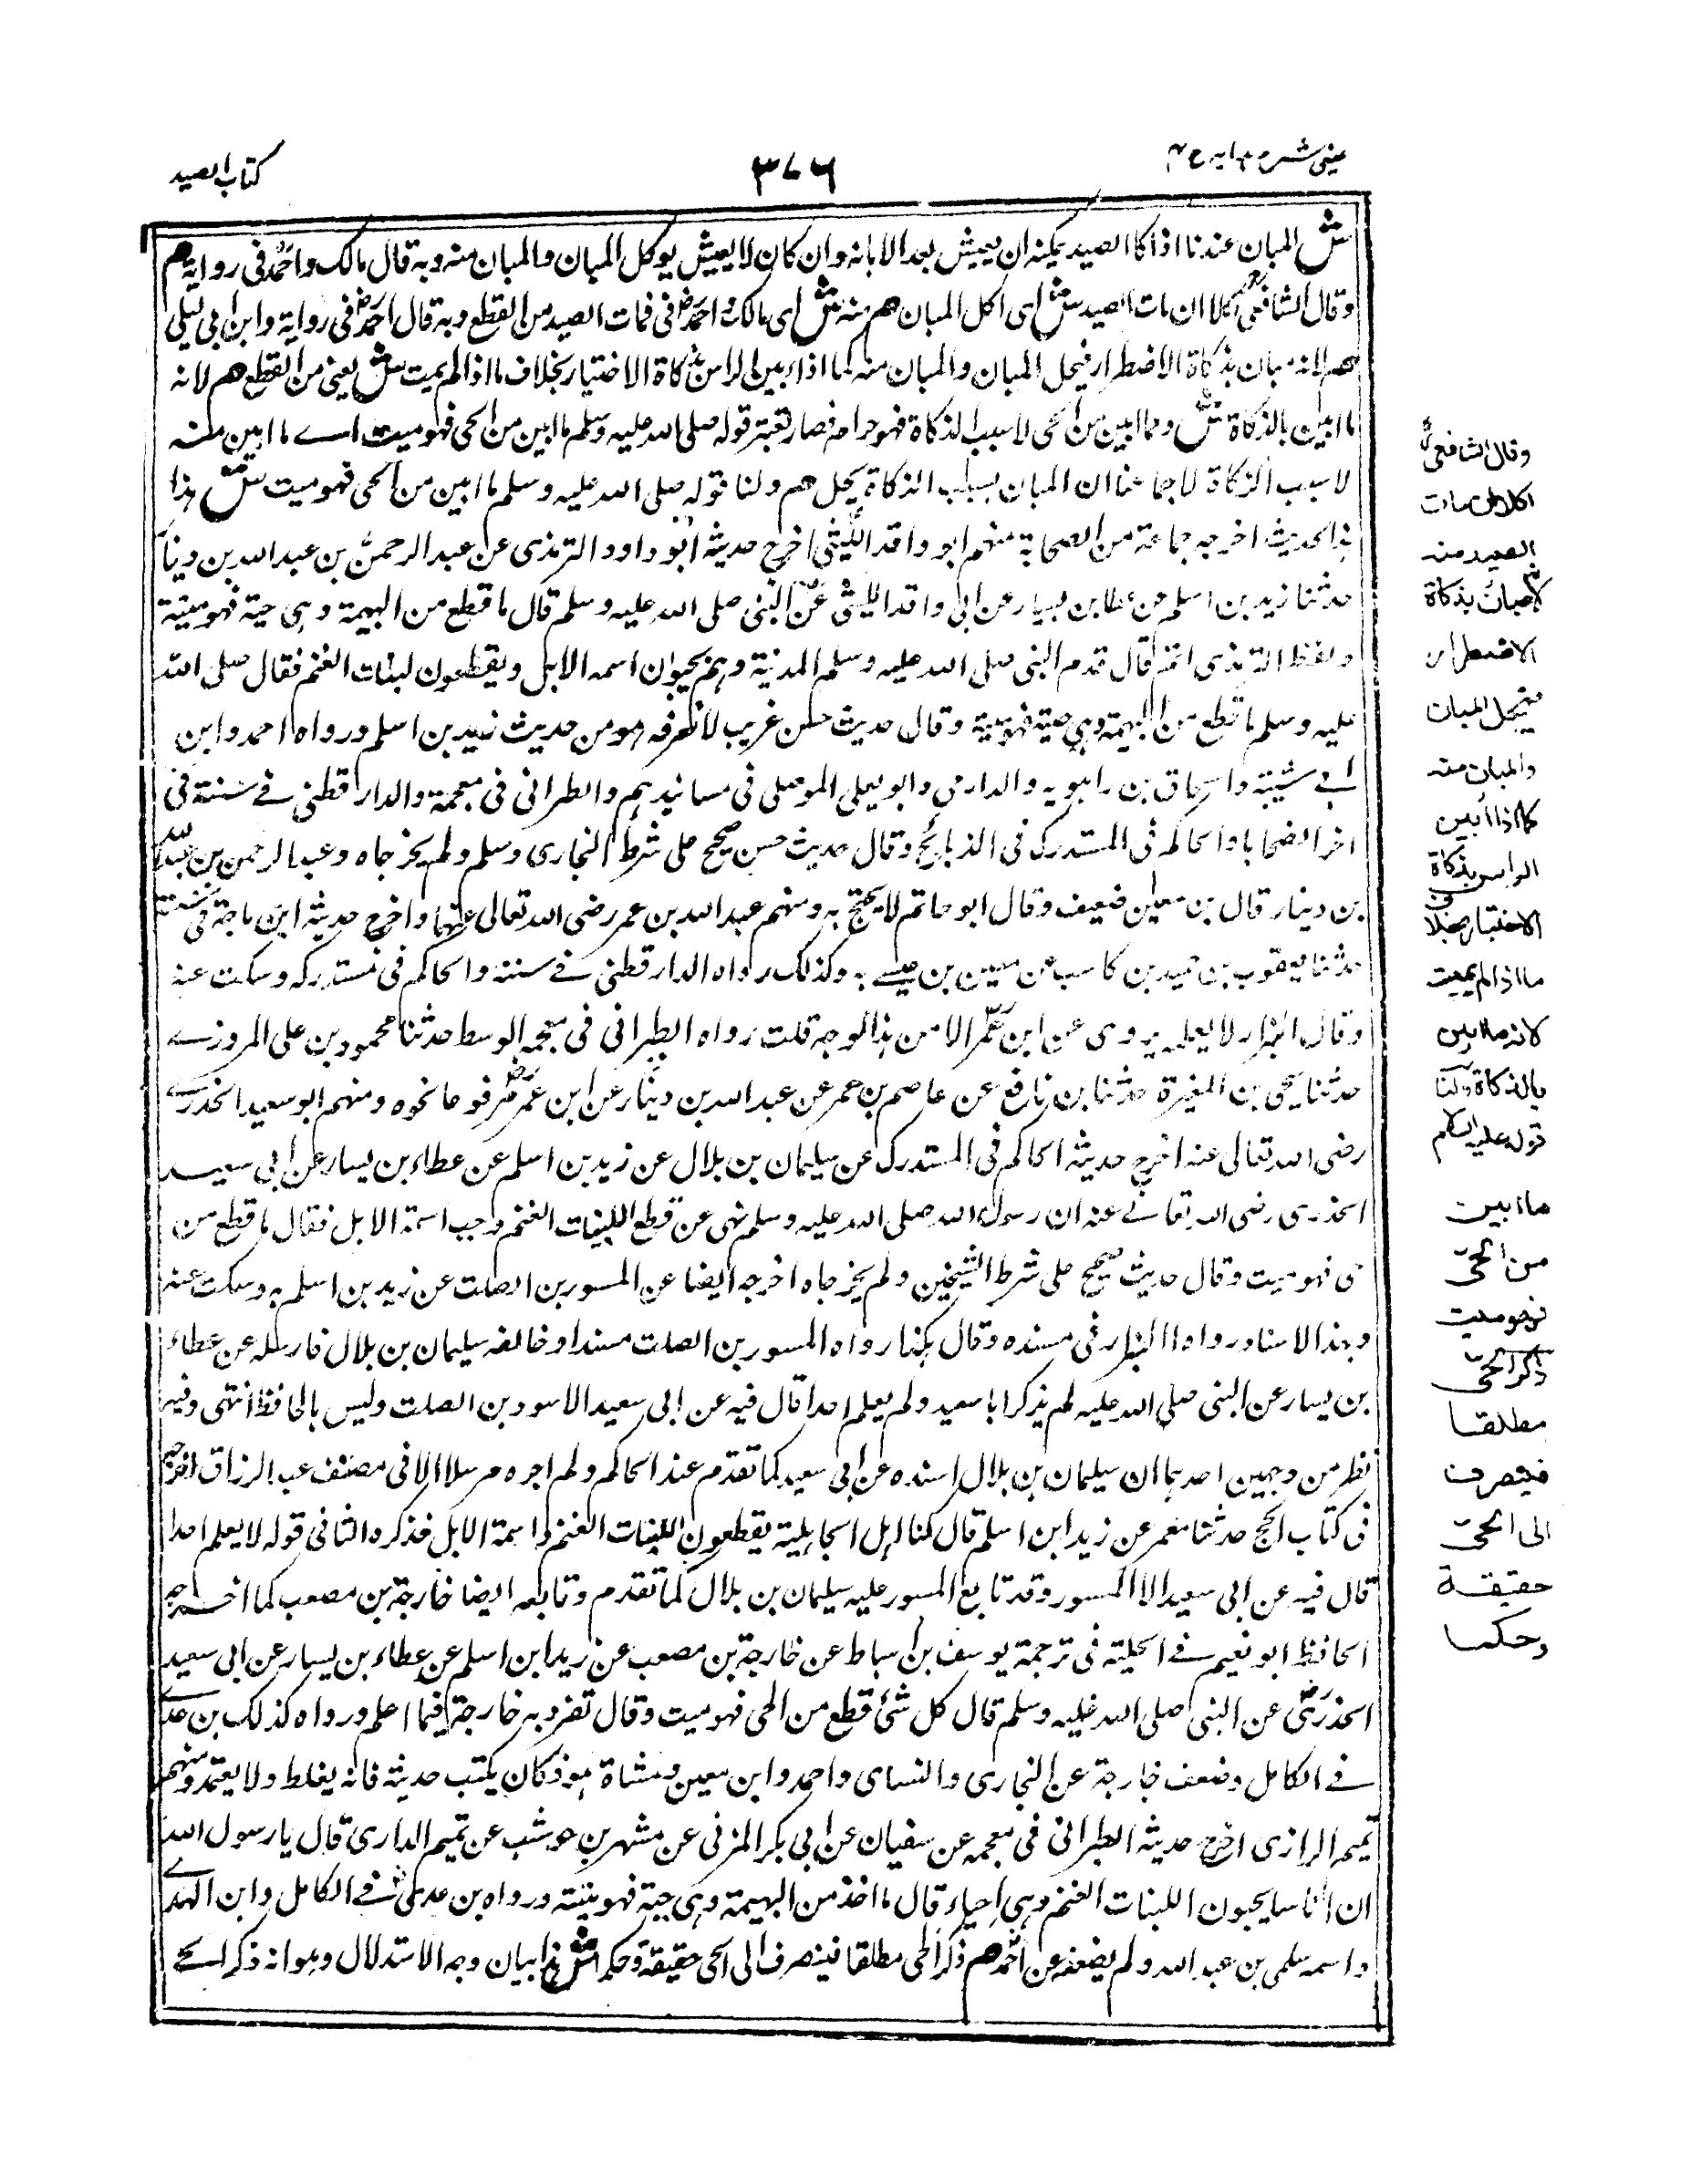 عينى شرح هدايه ج ٤
٣٧٦
كتاب الصيد
ش المبان عندنا اذا كا الصيد يمكنه ان يعيش بعد الابانه وان كان لا يعيش يوكل المبان والمبان منه وبه قال مالك واحمد فى رواية هم
وقال الشافعى اكلا ان مات الصيد ش اى اكل المبان هم منه ش اى مالك واحمد فى فمات الصيد من القطع وبه قال احمد فى رواية وابن ابى ليلى
هم لانه مبان بذكاة الاضطرار فيحل المبان والمبان منه كما اذا ابين الراس بذكاة الاختيار بخلاف ما اذا لم يمت ش يعنى من القطع هم لانه
ما ابين بالذكاة ش وما ابين من الحى لا بسبب الذكاة فهو حرام فصار تعبتر قوله صلى الله عليه وسلم ما ابين من الحى فهو ميت اے ما ابين منه
لا بسبب الذكاة لاجماعنا ان المبان بسبب الذكاة يحل هم ولنا قوله صلى الله عليه وسلم ما ابين من الحى فهو ميت ش هذا
هذا الحديث اخرجه جماعة من الصحابة منهم ابو واقد الليثى اخرج حديثه ابو داود الترمذى عن عبد الرحمن بن عبد الله بن دينار
حدثنا زيد بن اسلم عن عطا بن يسار عن ابى واقد الليثى عن النبى صلى الله عليه وسلم قال ما قطع من البهيمة وهى حية فهو ميتة
ولفظ الترمذى اتم قال قدم النبى صلى الله عليه وسلم المدينة وهم يحبون اسمه الابل ويقطعون لبنات الغنم فقال صلى الله
عليه وسلم ما قطع من البهيمة وهى حية فهو ميتة وقال حديث حسن غريب لا نعرفه هو من حديث زيد بن اسلم ورواه احمد وابن
ابے شيبة واسحاق بن راهويه والدارمى وابو يعلى الموصلى فى مسانيدهم والطبرانى فى معجمة والدارقطنى فے سننه فى
اخر الضحايا والحاكم فى المستدرك فى الذبائح وقال حديث حسن صحيح على شرط البخارى وسلم ولم يخرجاه وعبد الرحمن بن عبد الله
بن دينار قال بن معين ضعيف وقال ابو حاتم لا يحتج به ومنهم عبد الله بن عمر رضى الله تعالى عنهما واخرج حديثه ابن ماجة فى سننه
حدثنا يعقوب بن حميد بن كاسب عن معين بن عيسے به وكذلك رواه الدارقطنى فے سننه والحاكم فى مستدركه وسكت عنه
وقال البزار لا يعلمه يروى عن ابن عمر الا من هذا الوجه قلت رواه الطبرانى فى معجمه الوسط حدثنا محمود بن على المروزے
حدثنا يحى بن المغيرة حدثنا بن نافع عن عاصم بن عمر عن عبد الله بن دينار عن ابن عمر مرفوعا نحوه ومنهم ابو سعيد الخدرے
رضى الله تعالى عنه اخرج حديثه الحاكم فى المستدرك عن سليمان بن بلال عن زيد بن اسلم عن عطاء بن يسار عن ابى سعيد
الخدرى رضى الله تعالے عنه ان رسول الله صلى الله عليه وسلم نهى عن قطع اللبنات الغنم وجب اسمة الابل فقال ما قطع من
حى فهو ميت وقال حديث صحيح على شرط الشيخين ولم يخرجاه اخرجه ايضا عن المسور بن الصلت عن زيد بن اسلم به وسكت عنه
وبهذا الاسناد رواه البزار فى مسنده وقال هكذا رواه المسور بن الصلت مسندا وخالفه سليمان بن بلال فارسله عن عطاء
بن يسار عن النبى صلى الله عليه لم يذكر ابا سعيد ولم يعلم احدا قال فيه عن ابى سعيد الا سود بن الصلت وليس بالحافظ انتهى وفيه
نظر من وجهين احدهما ان سليمان بن بلال اسنده عن ابى سعيد كما تقدم عند الحاكم ولم اجره مرسلا الا فى مصنف عبد الرزاق اخرجه
فى كتاب الحج حدثنا معمر عن زيد ابن اسلم قال كنا اهل الجاهلية يقطعون اللبنات الغنم واسمة الابل فذكره الثانى قوله لا يعلم احدا
قال فيه عن ابى سعيد الا المسور وقد تابع المسور عليه سليمان بن بلال كما تقدم وتابعه ايضا خارجة بن مصعب كما اخرجه
الحافظ ابو نعيم فے الحلية فى ترجمة يوسف بن اسباط عن خارجة بن مصعب عن زيد ابن اسلم عن عطاء بن يسار عن ابى سعيد
الخدرى عن النبى صلى الله عليه وسلم قال كل شئ قطع من الحى فهو ميت وقال تفرد به خارجة فيما اعلم ورواه كذلك بن عدے
فے الكامل وضعف خارجة عن البخارى والنساى واحمد وابن معين ومشاة هو فكان يكتب حديثه فانه يغلط ولا يعتمد ومنهم
تميم الرازى اخرج حديثه الطبرانى فى معجمه عن سفيان عن ابى بكر المزنى عن مشهر بن حوشب عن تميم الدارى قال يا رسول الله
ان اناسا يحبون اللبنات الغنم وهى احياء قال ما اخذ من البهيمة وهى حية فهو ميتة ورواه بن عدى فے الكامل وابن الهدے
واسمه سلمى بن عبد الله ولم يضعفه عن احمد هم ذكر الحى مطلقا فينصرف الى الحى حقيقة وحكما ش هذا بيان وجه الاستدلال وهو انه ذكر الحے
وقال الشافعى
اكلا ان مات
الصيد منه
لانه مبان بذكاة
الاضطرار
فيحل المبان
والمبان منه
كما اذا ابين
الراس بذكاة
الاختيار بخلاف
ما اذا لم يميت
لانه ما ابين
بالذكاة ولنا
قوله عليه السلام
ما ابين
من الحىّ
فهو ميت
ذكر الحىّ
مطلقا
فينصرف
الى الحىّ
حقيقة
وحكما